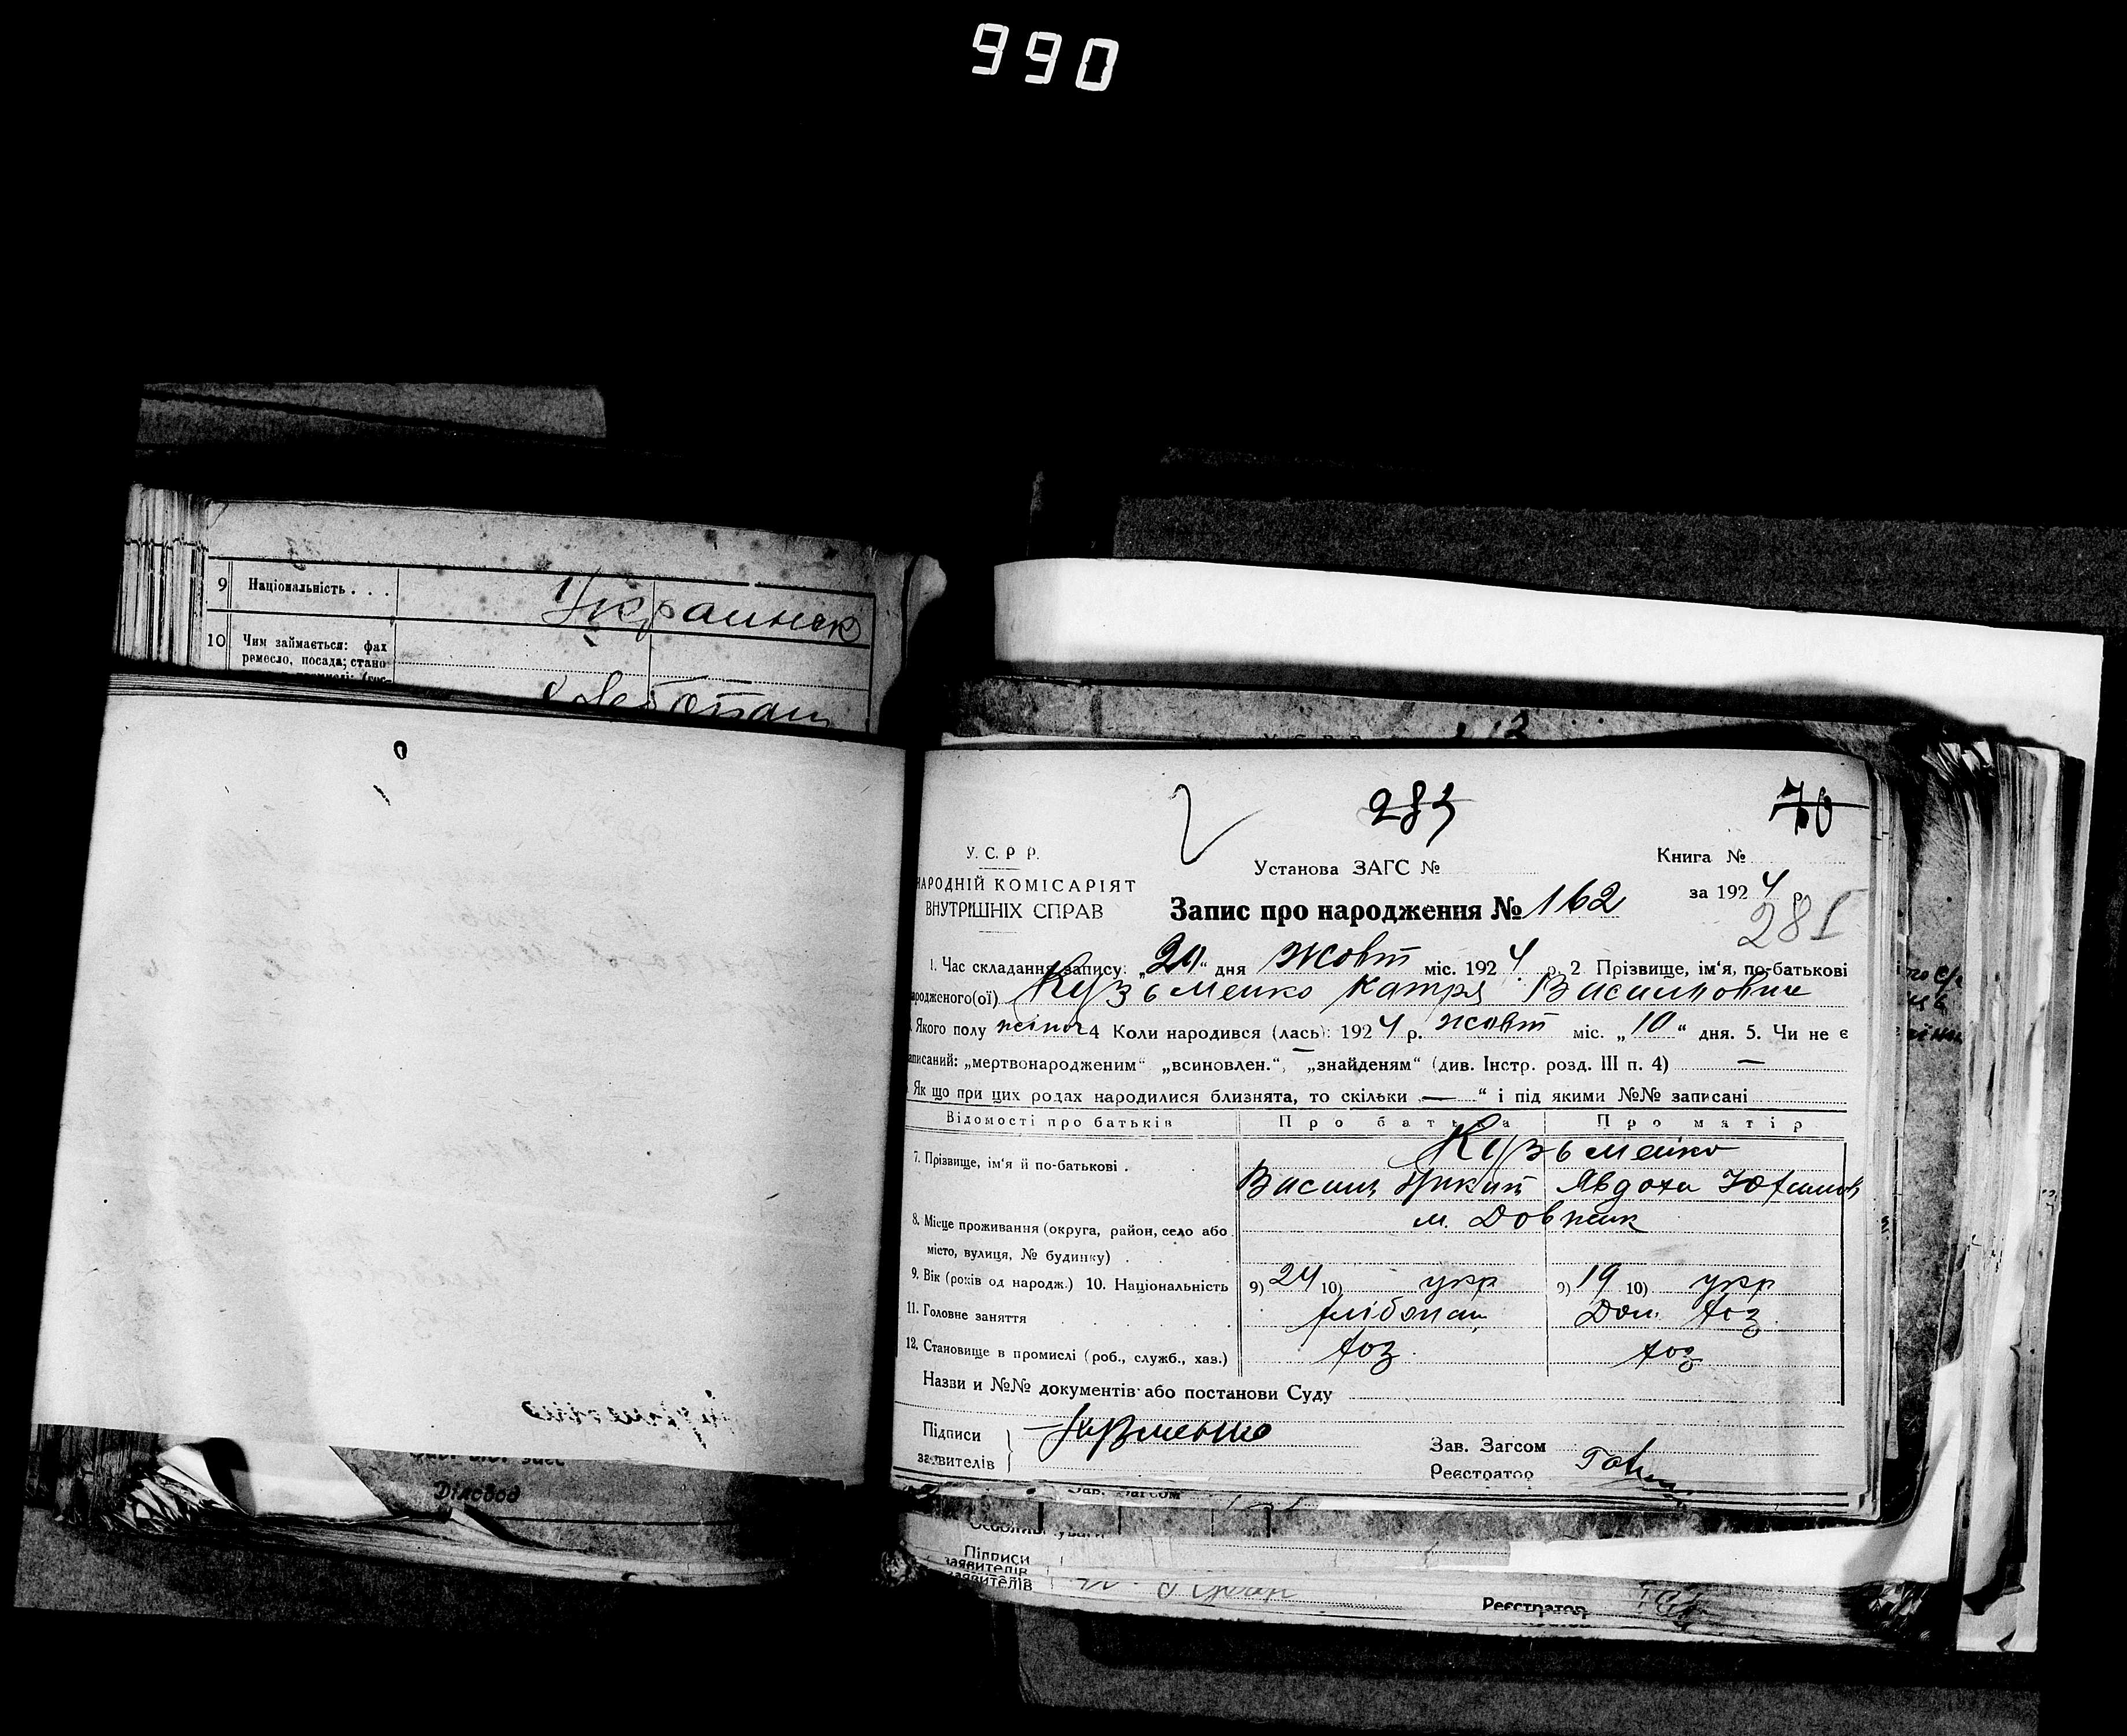 990
9 Національність . . .
Украинск
10 Чим займається: фах
ремесло, посада; стано
Діловод
285
70
У. С. Р Р.
НАРОДНІЙ КОМІСАРІЯТ
ВНУТРІШНІХ СПРАВ
Установа ЗАГС №
Книга №
за 1924 р.
Запис про народження № 162
281
1. Час складання запису: „20“ дня Жовт міс. 1924 р. 2 Прізвище, ім'я, по-батькові
народженого(ої) Кузьменко Катря Василовна
Якого полу жіноч 4 Коли народився (лась): 1924 р. жовт міс. „10“ дня. 5. Чи не є
записаний: „мертвонародженим“ „всиновлен.“, „знайденям“ (див. Інстр. розд. III п. 4) —
Як що при цих родах народилися близнята, то скільки — “ і під якими №№ записані
Відомості про батьків Про батька Про матір
7. Прізвище, ім'я й по-батькові .
Кузьменко
Василь Микит Явдоха Юхимов
8. Місце проживання (округа, район, село або
місто, вулиця, № будинку)
м. Довжик
9. Вік (років од народж.) 10. Національність 9) 24 10) укр 9) 19 10) укр
11. Головне заняття хлібопаш Дом. хоз.
12. Становище в промислі (роб., служб., хаз.) хоз. хоз
Назви и №№ документів або постанови Суду
Підписи
заявителів
Кузменко
Зав. Загсом
Реєстратор
Зав. Загсом
Підписи
заявителів
заявителів
Реєстратор